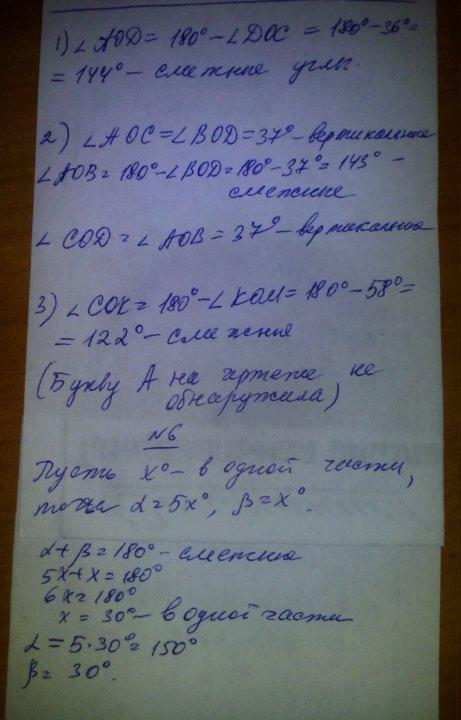 1) ∠AOD = 180° - ∠DOC = 180° - 36° =
= 144° - смежные углы.
2) ∠AOC = ∠BOD = 37° - вертикальные
∠AOB = 180° - ∠BOD = 180° - 37° = 143° -
смежные
∠COD = ∠AOB = 37° - вертикальные
3) ∠COK = 180° - ∠KOM = 180° - 58° =
= 122° - смежные
(Букву А на чертеже не
обнаружила)
№6
Пусть x° - в одной части,
тогда α = 5x°, β = x°.
α + β = 180° - смежные
5x + x = 180°
6x = 180°
x = 30° - в одной части
α = 5·30° = 150°
β = 30°.